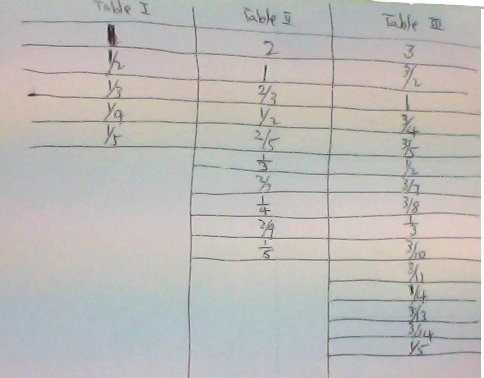 Table I Table II Table III
1 2 3
1/2 1 3/2
1/3 2/3 1
1/4 1/2 3/4
1/5 2/5 3/5
1/3 1/2
2/7 3/7
1/4 3/8
2/9 1/3
1/5 3/10
3/11
1/4
3/13
3/14
1/5